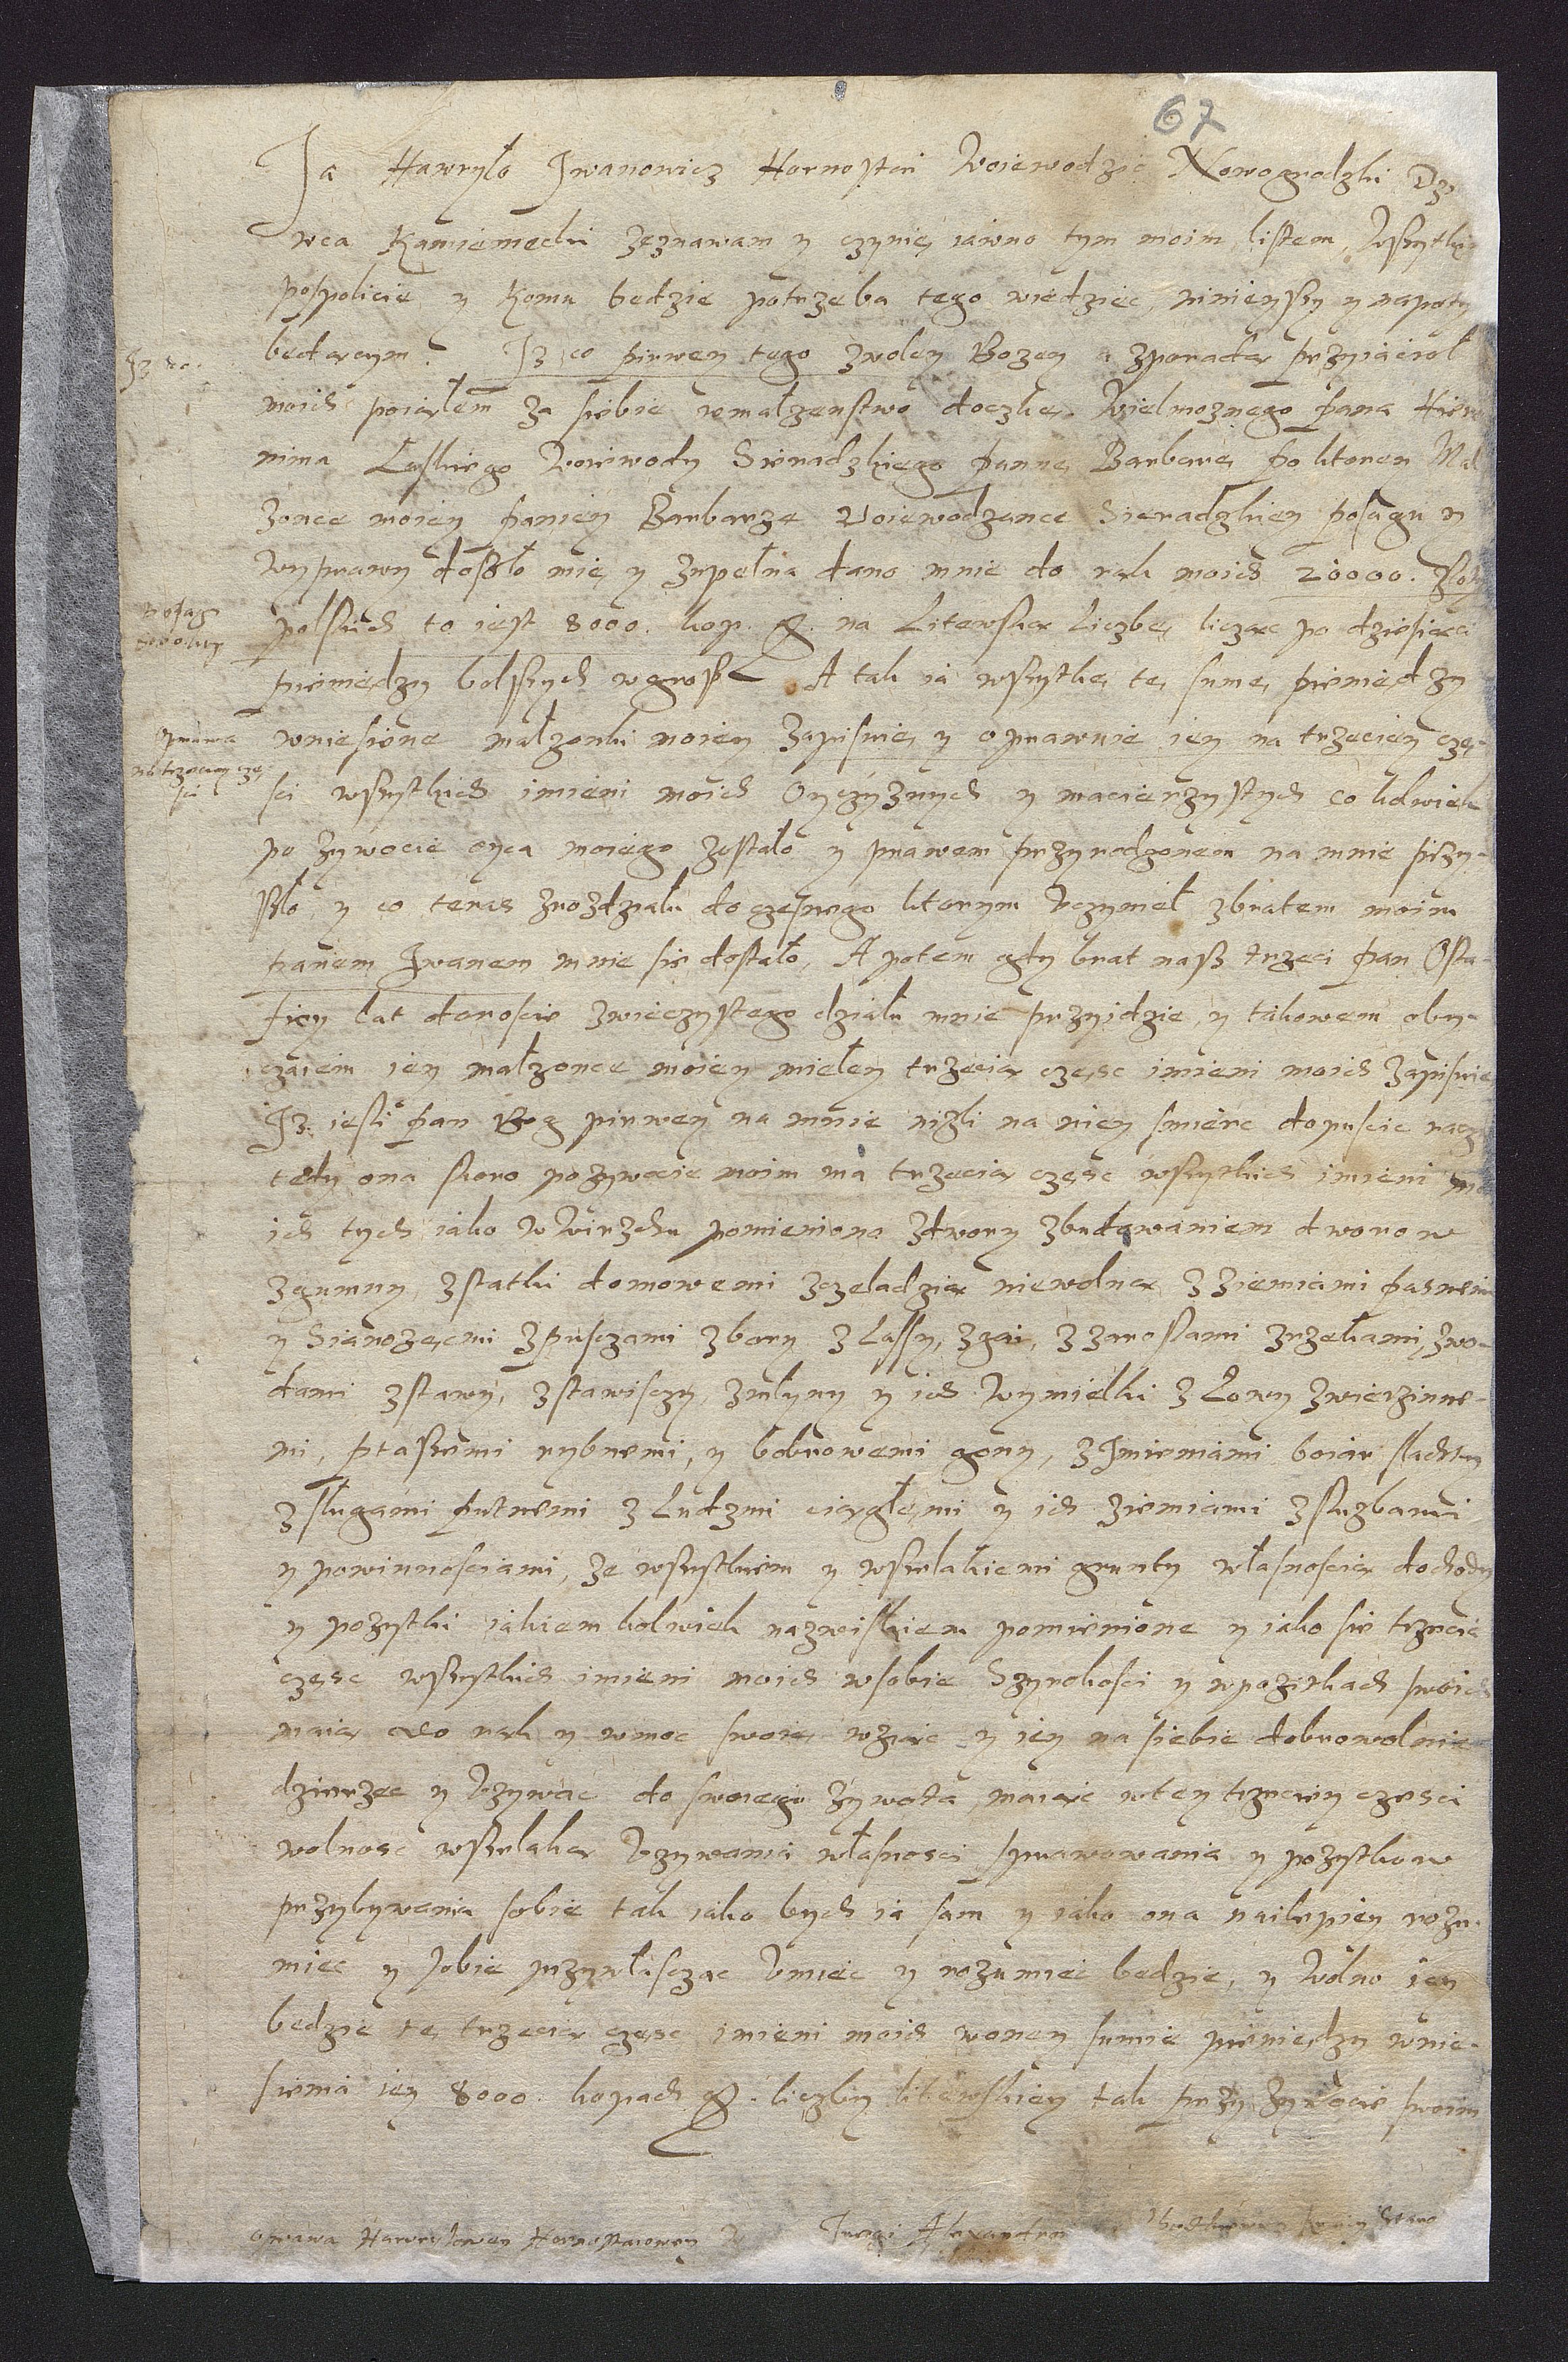 67
Ja Hawryło Jwanowicz Hornostai Woiewodzic Nowogrodzki Dzi
wca Kamieniecki zeznawam y czynię iawno tym moim listem, Wszytki
pospolicie y komu bedzie potrzeba tego wiedziec, ninieyszy y napoty
bedacym. Jz co pirwey tego zwoley Bozey a zporada przyiacioł
moich poiąłem za siebie wmałzenstwo doczkę Wielmoznego pana Hiero
nima Laskiego woiewody Sieradzkiego pannę Barbarę po ktorey Mał
zonce moiey paniey Barbarze Woiewodzance Sieradzkiey posagu y
wyprawy doszło mię y zupełna dano mnie do rąk moich 20000. złoty
polskich to iest 8000. kop. g. na Litewską Liczbę, licząc po dziesiąci
pieniędzy bolszych wgrosz A tak ia wszytkę tę sumę pieniędzy
wniesione małzonki moiey zapisuię y oprawuię iey na trzeciey czę-
sci wszytkich imieni moich Oyczyznych y macierzystych co kolwiek
po zywocie oyca moiego zostało y prawem przyrodzonem na mnie przy-
szło, y co teras zrozdziału doczesnego ktorym Vczynił zbratem moim
panem Jwanem mnie się dostało, A potem gdy brat nasz trzeci pan Osta-
fiey lat doroscie zwieczystego działu mnie przyidzie, y takowem oby-
czaiem iey małzonce moiey miełey trzecią częsc imieni moich zapisuię
Jz iesli pan Bog pirwey na mnie nizli na niey smierc dopuscic raczy
tedy ona skoro pozywocie moim ma trzecią częsc wszytkich imieni mo
ich tych iako wWirzchu pomieniono zdwory zbudowaniem dworow
zgumny, zstatki domowemi zczeladzią niewolną z ziemiami pasnemi
y Sianozęcmi zpusczami zbory z Lassy, zgai, z zaroslami zrzekami, zwo-
dami zstawy, zstawisczy, zmłyny y ich Wymiełki z Łowy zwierzinne-
mi, ptaszemi rybnemi, y bobrowemi gony, z Jmieniami boiar slachty
z sługami putnemi z Ludzmi ciągłemi y ich ziemiami zsłuzbami
y powinnosciami, ze wszystkiem y wszelakiemi grunty własnoscią dochody
y pozytki iakiem kolwiek nazwiskiem pomienione y iako się trzecia
częsc wszystkich imieni moich wsobie Szyrokosci y wpozitkach swoich
maią do rąk y wmoc swoię wziąc y iey na siebie dobrowolnie
dzierzec y Vzywac do swoiego zywota, maiąc wtey trzeciey częsci
wolnosc wszelaką Vzywania własnosci sprawowania y pozytkow
przybywania sobie tak iako bych ia sam y iako ona nailepiey rozu-
miec y sobie przywłasczac Vmiec y rozumiec bedzie, y Wolno iey
bedzie tę trzecią częsc imieni moich woney sumie pieniędzy wnie-
sienia iey 8000. kopach g. liczby litewskiey tak przy zywocie swoim
Jz co.
posag
Oprawa
na trzeciey czę
sci
oprawa Hawryłowey Hornostaiowey